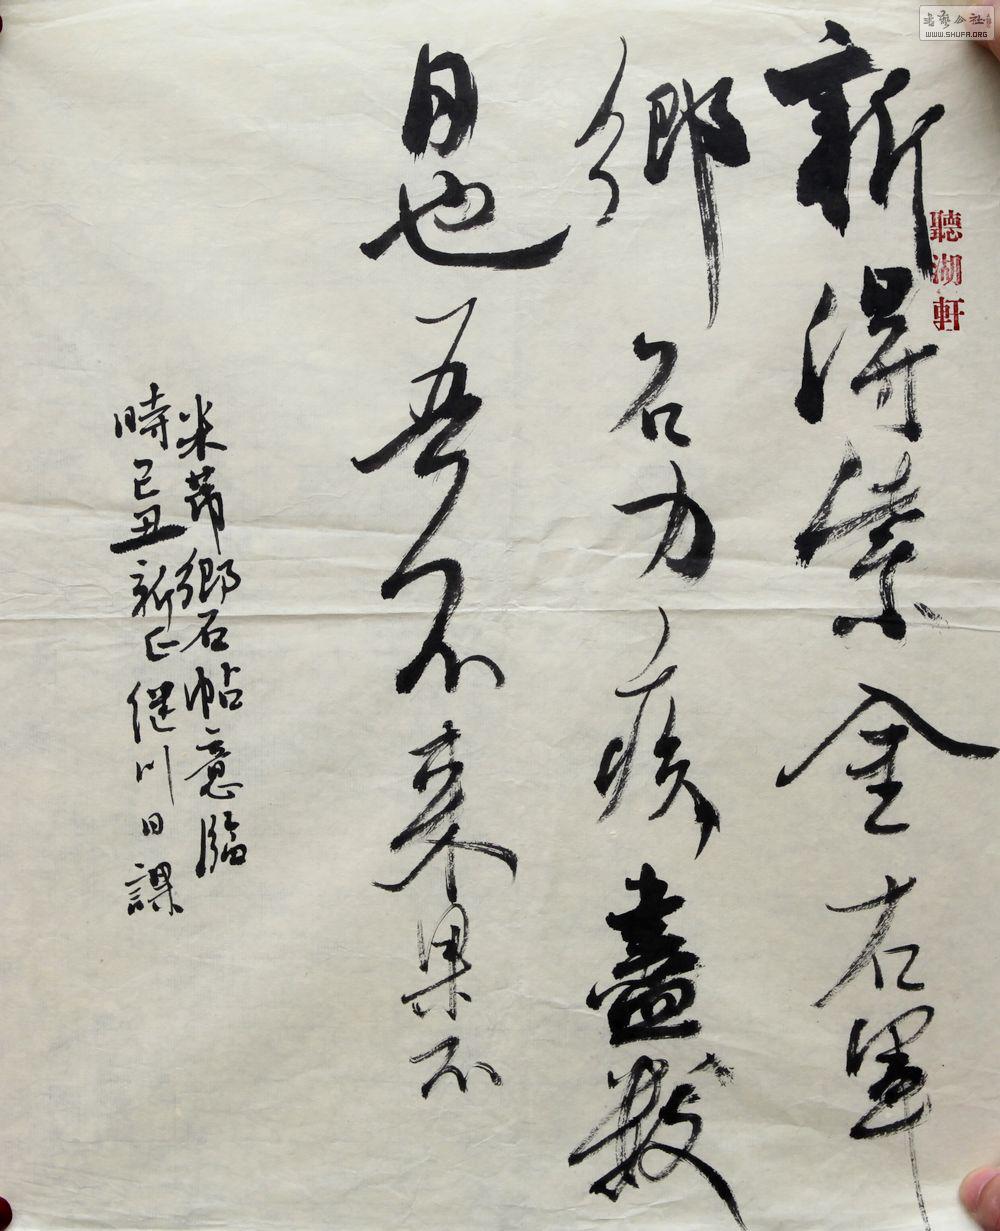 新得紫金右軍
鄉石力疾盡數
日也吾不來果不
米芾鄉石帖意臨
時己丑新正継川日課
聽湖軒
书艺公社
WWW.SHUFA.ORG